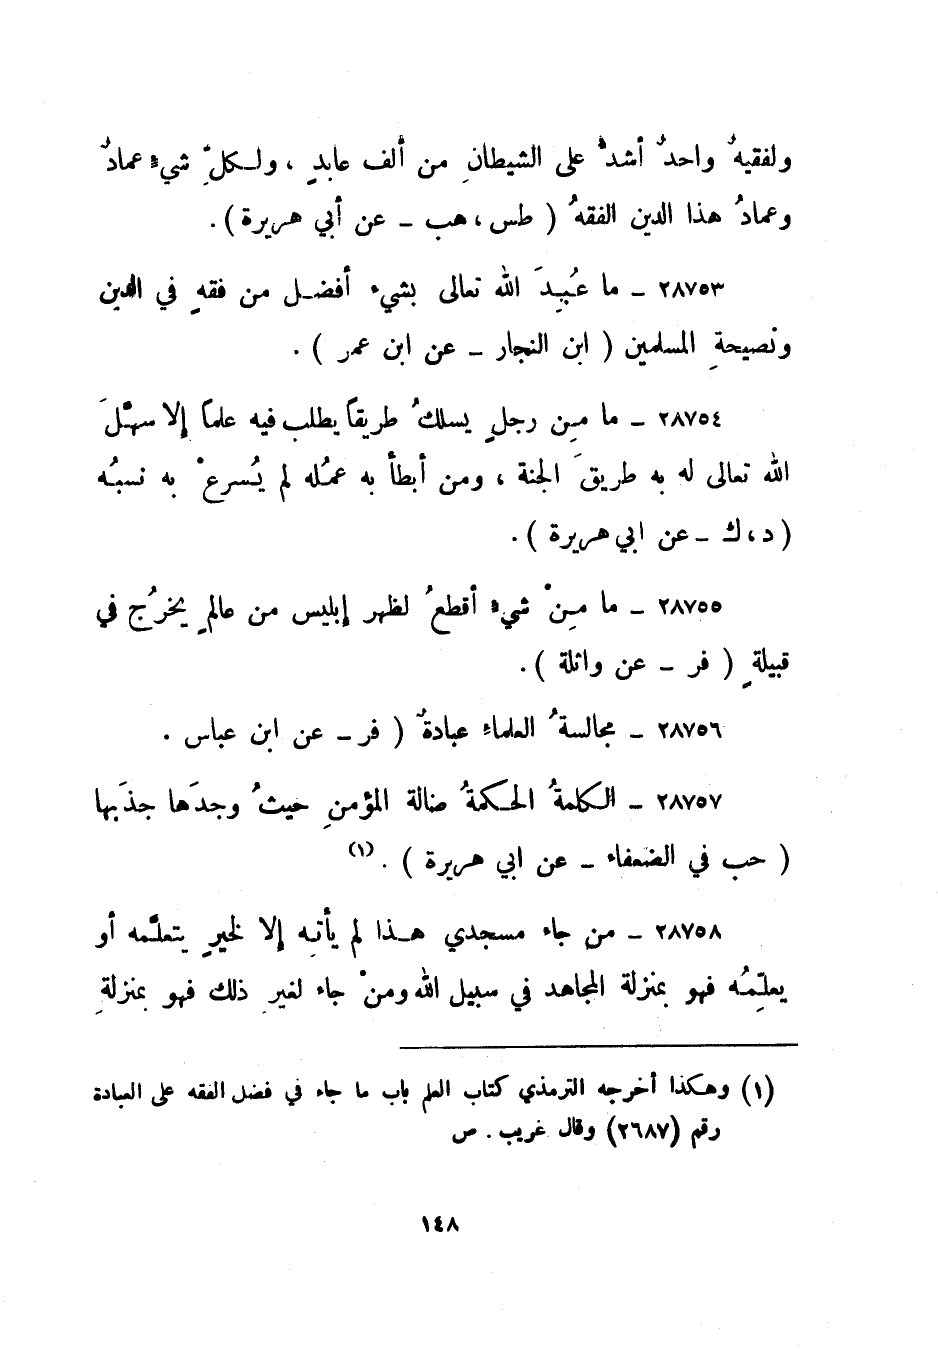 ولفقيهٌ واحدٌ أشدُّ على الشيطانِ من ألف عابدٍ ، ولـكلِّ شيءٍ عمادٌ
وعمادُ هذا الدين الفقهُ ( طس ، هب ـ عن أبي هريرة ) .
٢٨٧٥٣ ـ ما عُبِدَ الله تعالى بشيء أفضل من فقهٍ في الدين
ونصيحةِ المسلمين ( ابن النجار ـ عن ابن عمر ) .
٢٨٧٥٤ ـ ما مِن رجلٍ يسلكُ طريقاً يطلب فيه علماً إلا سهَّلَ
الله تعالى له به طريقَ الجنة ، ومن أبطأ به عملُه لم يُسرعْ به نسبُه
( د ، ك ـ عن ابي هريرة ) .
٢٨٧٥٥ ـ ما مِنْ شيءٍ أقطعُ لظهر إبليس من عالمٍ يخرُج في
قبيلةٍ ( فر ـ عن واثلة ) .
٢٨٧٥٦ ـ مجالسةُ العلماءِ عبادةٌ ( فر ـ عن ابن عباس .
٢٨٧٥٧ ـ الكلمةُ الحكمةُ ضالة المؤمنِ حيثُ وجدَها جذَبها
( حب في الضعفاء ـ عن ابي هريرة ) . (١)
٢٨٧٥٨ ـ من جاء مسجدي هـذا لم يأتِه إلا لخيرٍ يتعلَّمه أو
يعلِّمُه فهو بمنزلة المجاهد في سبيل الله ومنْ جاء لغيرِ ذلك فهو بمنزلةِ
(١) وهكذا أخرجه الترمذي كتاب العلم باب ما جاء في فضل الفقه على العبادة
رقم (٢٦٨٧) وقال غريب . ص
١٤٨